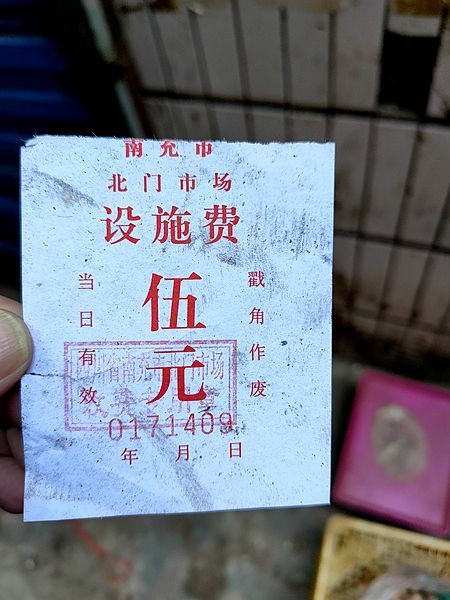 南充市
北门市场
设施费
伍元
当日有效
戳角作废
省南充市北门市场
0171409
年 月 日